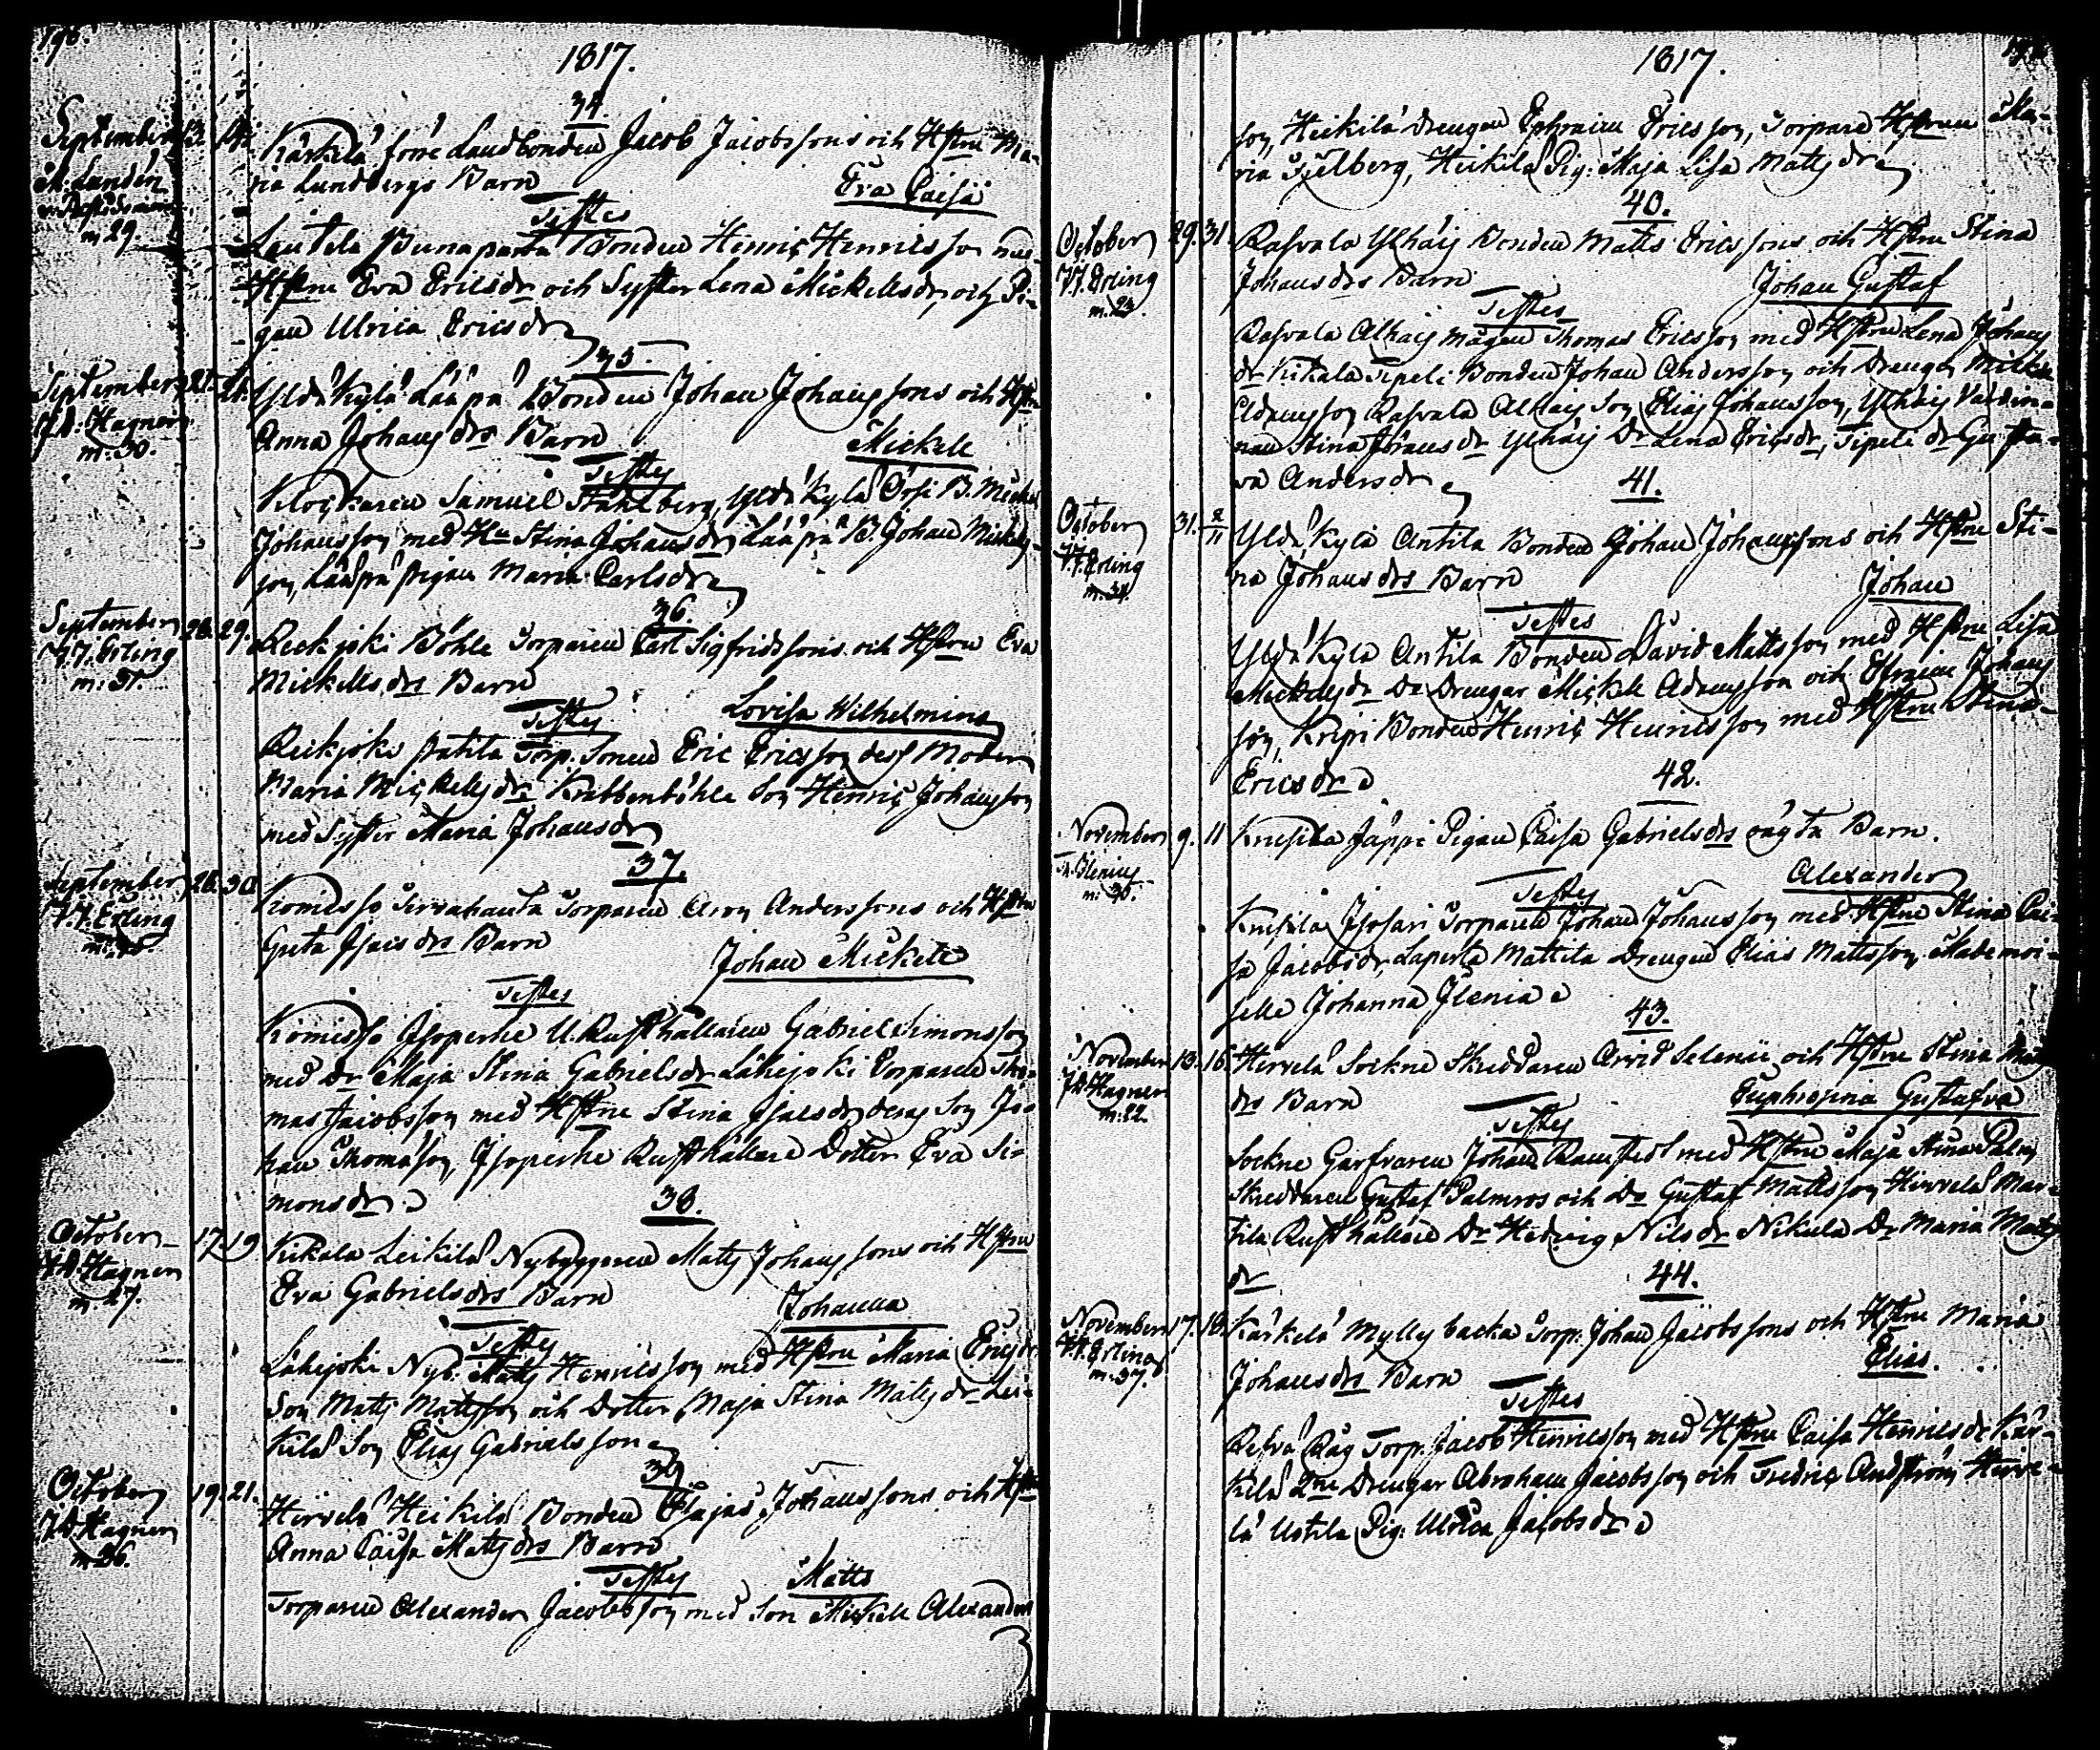 198.
1817.
34.
September 13. 14. Kärkelä förre Landbonden Jacob Jacobssons och Hstru Ma-
A. Lundén
ria Lundbergs Barn Eva Caisa
m. 29.
Testes
Lautela Bunaparta Bonden Henric Henricsson med
Hstru Eva Ericsdr och Syster Lena Mickelsdr, och Pi-
gan Ulrica Ericsdr
35.
September 21. 21. Yldäkylä Lääpä Bonden Johan Johanssons och Hstru
J.A. Hagner
Anna Johansdrs Barn Mickell
m. 30.
Testes
Klockaren Samuel Ståhlberg, Yldäkylä Örsi B. Mickel
Johansson med Hu Stina Johansdr, Lääpä B. Johan Mickels-
son, Lääpä pigan Maria Carlsdr
36.
September 28. 29. Reckjoki Böhle Torparen Carl Sigfridssons och Hstru Eva
J.J. Erling
Mickelsdrs Barn
m. 31.
Testes Lovisa Wilhelmina
Reikjoki patila Torp. Sonen Eric Ericsson dess Moder
Maria Mickelsdr Krabbenböhle Son Henric Johansson
med Syster Maria Johansdr
37.
September 28. 30. Komisso Torparen Aron Anderssons och Hstru
J.J. Erling
Greta Isacsdrs Barn
Johan Mickell
Testes
Komisso Isoperhe U. Rusthållaren Gabriel Simonsson
med Dr Maja Stina Gabrielsdr Lähejoki Torparen Tho-
mas Jacobsson med Hstru Stina Isacsdr, deras Son Jo-
han Thomasson, Isoperhe Rusthållare Dotter Eva Si-
monsdr
38.
October 17. 19. Kikala Leikilä Nybyggaren Matts Johanssons och Hstru
J.A. Hagner
Eva Gabrielsdrs Barn Johanna
m. 27.
Testes
Lähejoki Nyb: Matts Henricsson med Hstru Maria Ericsdr
Son Matts Mattsson och Dotter Maja Stina Mattsdr Lei-
kilä Son Elias Gabrielsson
39.
October 19. 21. Hirvelä Heikilä Bonden Esajas Johanssons och Hstru
J.A. Hagner
Anna Caisa Mattsdrs Barn
m. 26.
Testes Matts
Torparen Alexander Jacobsson med Son Mickell Alexanders
1817.
son, Heikilä drengen Ephraim Ericsson, Torpare Hstrun Ma-
ria Sjelberg, Heikilä Pig: Maja Lisa Mattsdr
40.
October 29. 31. Rasvala Ylhäis Bonden Matts Ericssons och Hstru Stina
J.J. Erling
Johansdrs Barn Johan Gustaf
m. 23.
Testes
Rasvala Alhais mågen Thomas Ericsson med Hstru Lena Johans
dr Kikala Tipeli Bonden Johan Andersson och Drengen Mickel
Adamsson Rasvala Alhais Son Elias Johansson, Ylhäis Värdin-
nan Stina Göransdr Ylhäis Dr Lena Ericsdr, Tipeli dr Gusta-
va Andersdr
41.
October 31. 2/11 Yldäkylä Antila Bonden Johan Johanssons och Hstru Sti-
J.J. Erling
na Johansdrs Barn Johan
m. 34.
Testes
Yldäkylä Antila Bonden David Mattsson med Hstru Lisa
Mickelsdr Do Drengar Mickel Adamsson och Efraim Johans
son, Kripi Bonden Henric Henricsson med Hstru Stina
Ericsdr
42.
November 9. 11 Knusila Jäppi Pigan Caisa Gabrielsdrs oägta Barn.
m. 30.
Testes Alexander
Knusila Isosari Torparen Johan Johansson med Hstru Stina Cai-
sa Jacobsdr, Laperla Mattila Drengen Elias Mattsson, Mademoi-
selle Johanna Ilenia
43.
November 13. 16. Hirvelä Sockne Skreddaren Arvid Selenii och Hstru Stina Matts
J.A. Hagner
drs Barn Euphrosina Gustafva
m. 22.
Testes
Sockne Garfvaren Johan Ramstedt med Hstru Maja Stina Palm
Skreddaren Gustaf Palmros och Do Gustaf Mattsson, Hirvelä Mar-
tila Rusthållare Dr Hedvig Nilsdr Nikula Dr Maria Matts
dr
44.
November 17. 18. Kärkelä Myllybacka Torp: Johan Jacobssons och Hstru Maria
J.J. Erling
Johansdrs Barn Elias.
m. 37.
Testes
Torp. Jacob Henricsson med Hstru Caisa Henricsdr Kär-
kelä Drengar Abraham Jacobsson och Fredric Andström Hirve-
lä Ustila Pig: Ulrica Jacobsdr